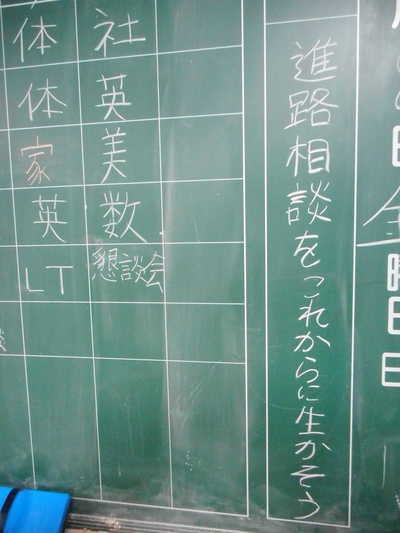 金曜日
進路相談をこれからに生かそう
社
英
美
数
懇談会
体
体
家
英
LT